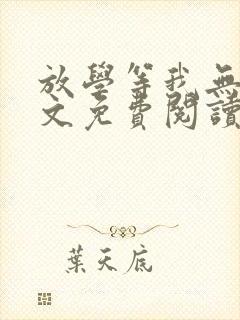 放學等我無
文免費閱讀
葉天底